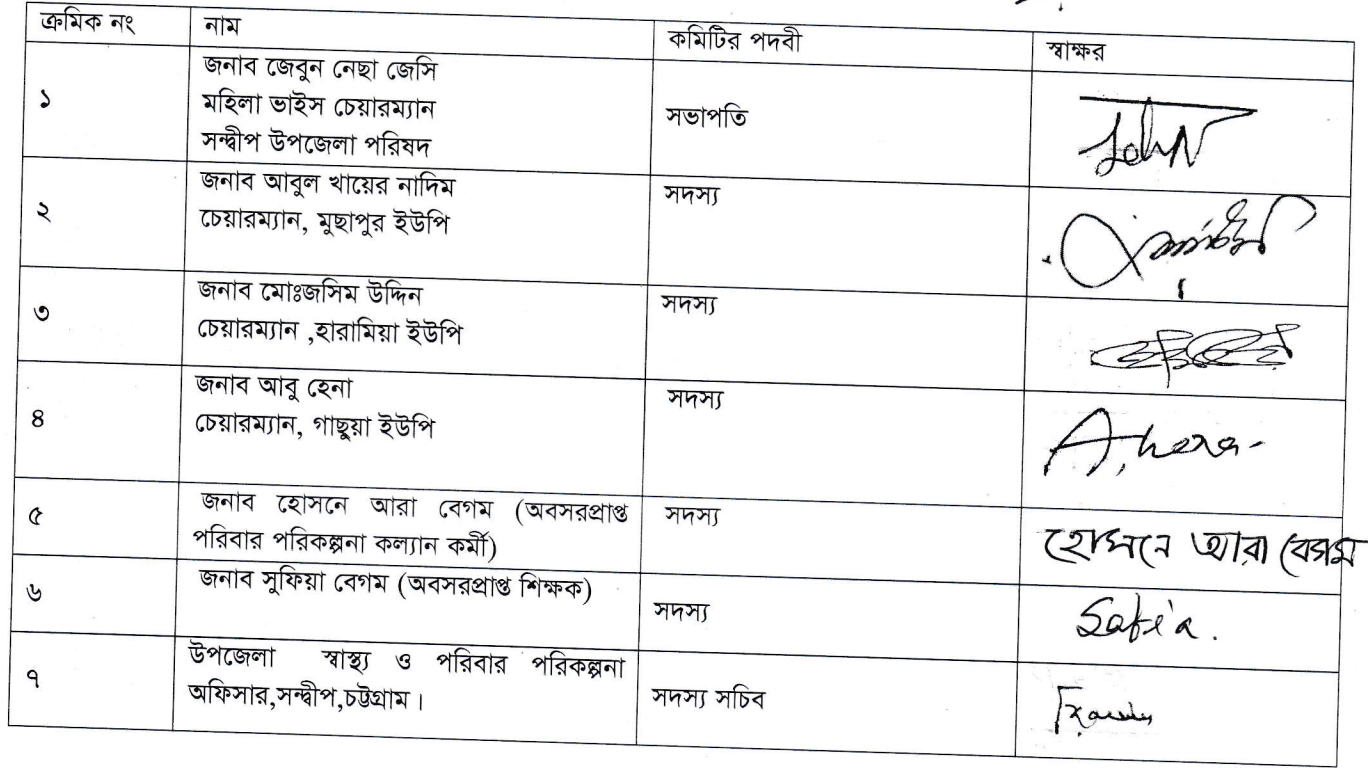 ক্রমিক নং নাম কমিটির পদবী স্বাক্ষর
জনাব জেবুন নেছা জেসি
১ মহিলা ভাইস চেয়ারম্যান সভাপতি
সন্দ্বীপ উপজেলা পরিষদ
জনাব আবুল খায়ের নাদিম সদস্য
২ চেয়ারম্যান, মুছাপুর ইউপি
জনাব মোঃজসিম উদ্দিন সদস্য
৩ চেয়ারম্যান ,হারামিয়া ইউপি
জনাব আবু হেনা সদস্য
৪ চেয়ারম্যান, গাছুয়া ইউপি
A. hena
৫ জনাব হোসনে আরা বেগম (অবসরপ্রাপ্ত সদস্য
পরিবার পরিকল্পনা কল্যান কর্মী) হোসনে আরা বেগম
৬ জনাব সুফিয়া বেগম (অবসরপ্রাপ্ত শিক্ষক) সদস্য Sofia.
উপজেলা স্বাস্থ্য ও পরিবার পরিকল্পনা
৭ অফিসার,সন্দ্বীপ,চট্টগ্রাম। সদস্য সচিব